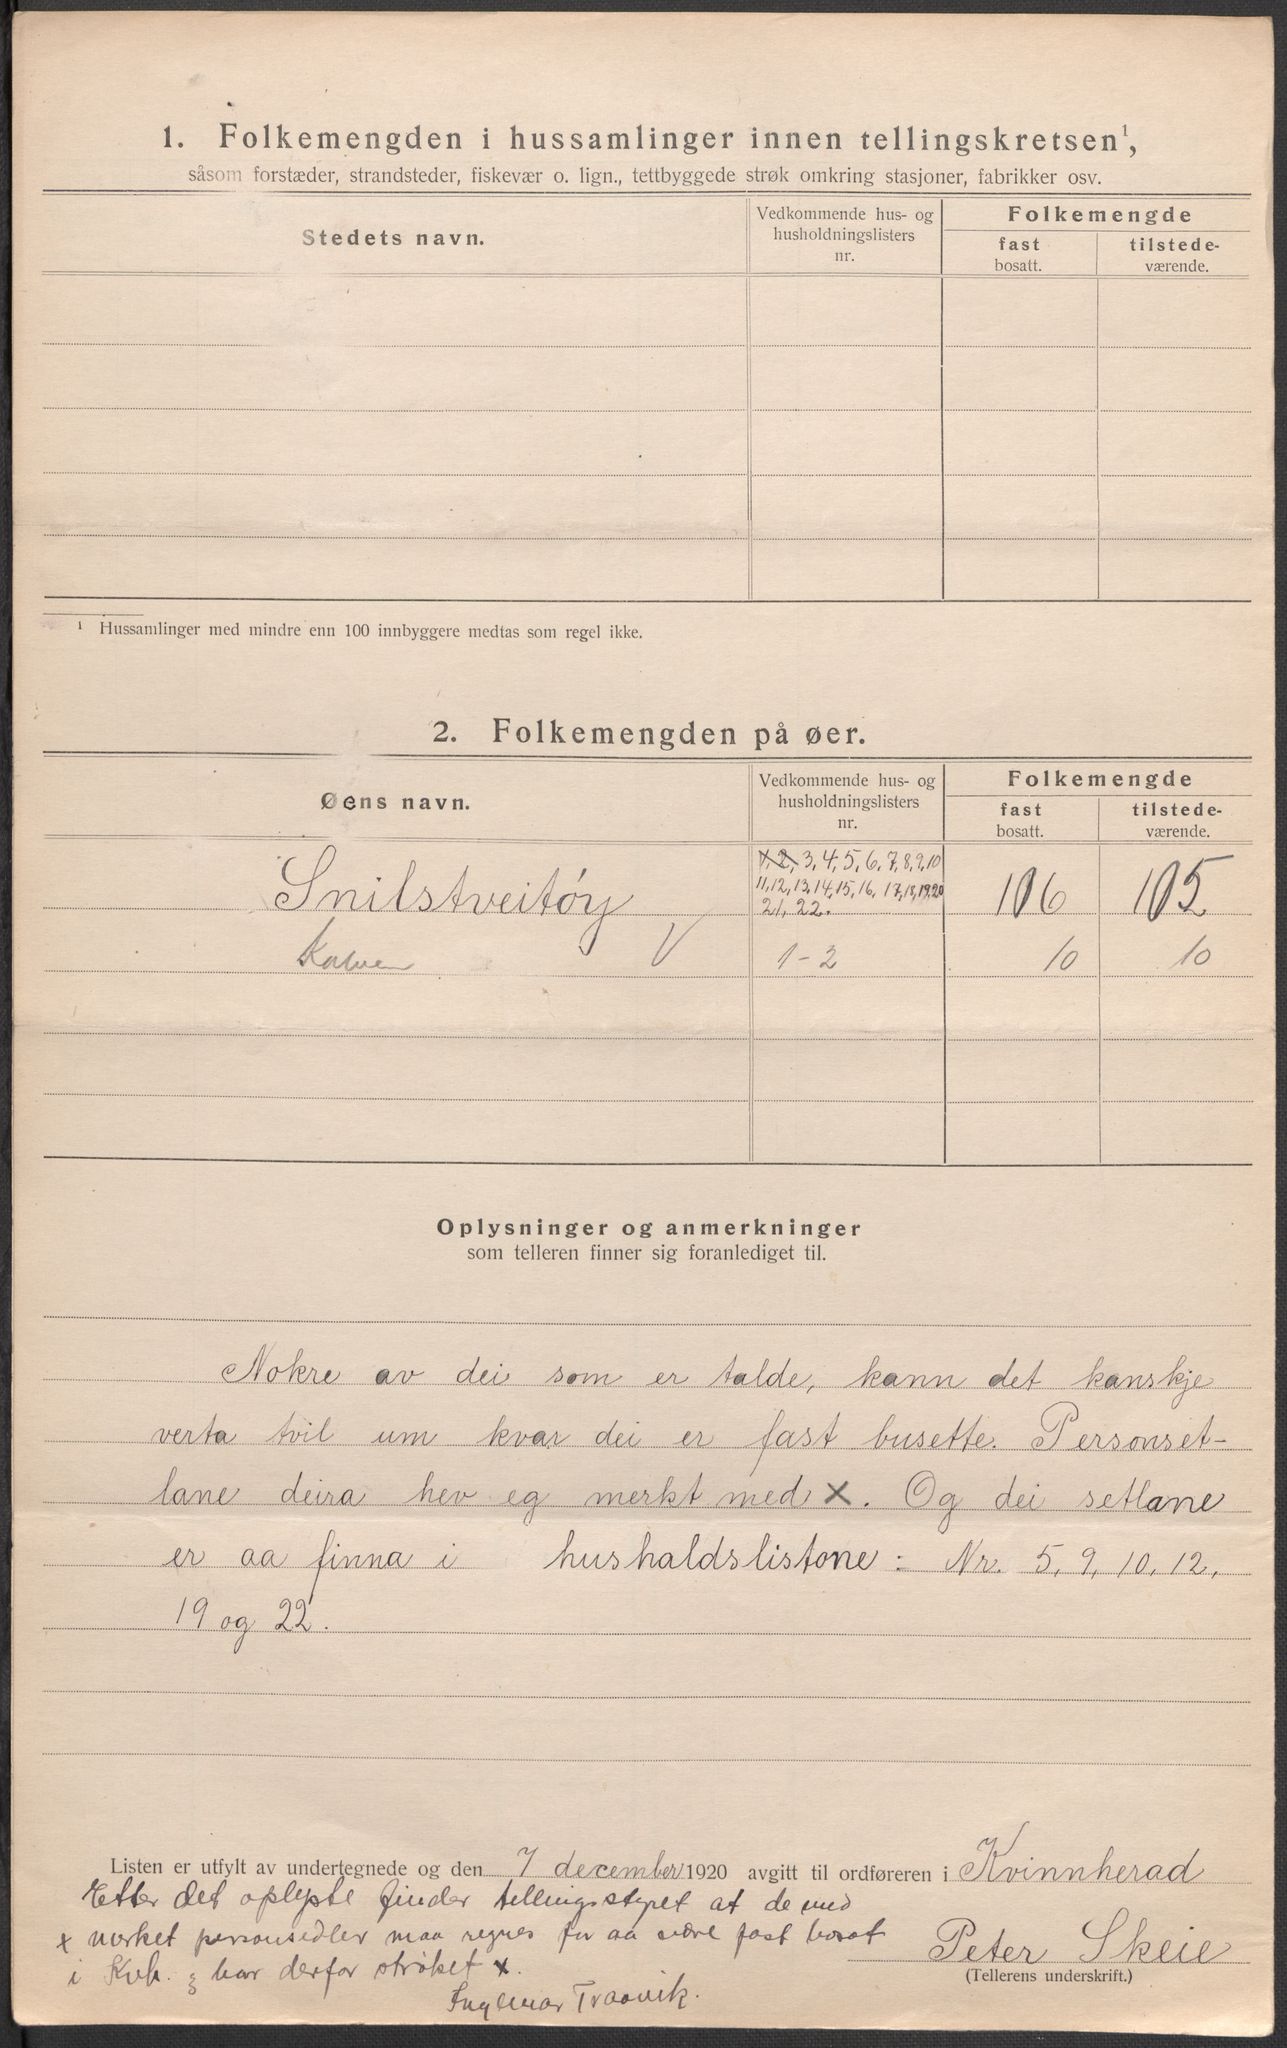 1. Folkemengden i hussamlinger innen tellingskretsen¹,
såsom forstæder, strandsteder, fiskevær o. lign., tettbyggede strøk omkring stasjoner, fabrikker osv.
Stedets navn.
Vedkommende hus- og
husholdningslisters
nr.
Folkemengde
fast
bosatt.
tilstede-
værende.
¹ Hussamlinger med mindre enn 100 innbyggere medtas som regel ikke.
2. Folkemengden på øer.
Øens navn.
Vedkommende hus- og
husholdningslisters
nr.
Folkemengde
fast
bosatt.
tilstede-
værende.
1, 2, 3, 4, 5, 6, 7, 8, 9, 10
Snilstveitøy 11, 12, 13, 14, 15, 16, 17, 18, 19, 20 106 105
21, 22.
Kalven V 1-2 10 10
Oplysninger og anmerkninger
som telleren finner sig foranlediget til.
Nokre av dei som er talde, kann det kanskje
verta tvil um kvar dei er fast busette. Personset-
lane deira hev eg merkt med x. Og dei setlane
er aa finna i hushaldslistone: Nr. 5, 9, 10, 12,
19 og 22.
Listen er utfylt av undertegnede og den 7 december 1920 avgitt til ordføreren i Kvinnherad
Etter det oplyste finder tellingsstyret at de med
x merket personsedler maa regnes for aa være fast bosat
i Kvh. & har derfor strøket x.
Peter Skeie
(Tellerens underskrift.)
Ingemar Traavik.